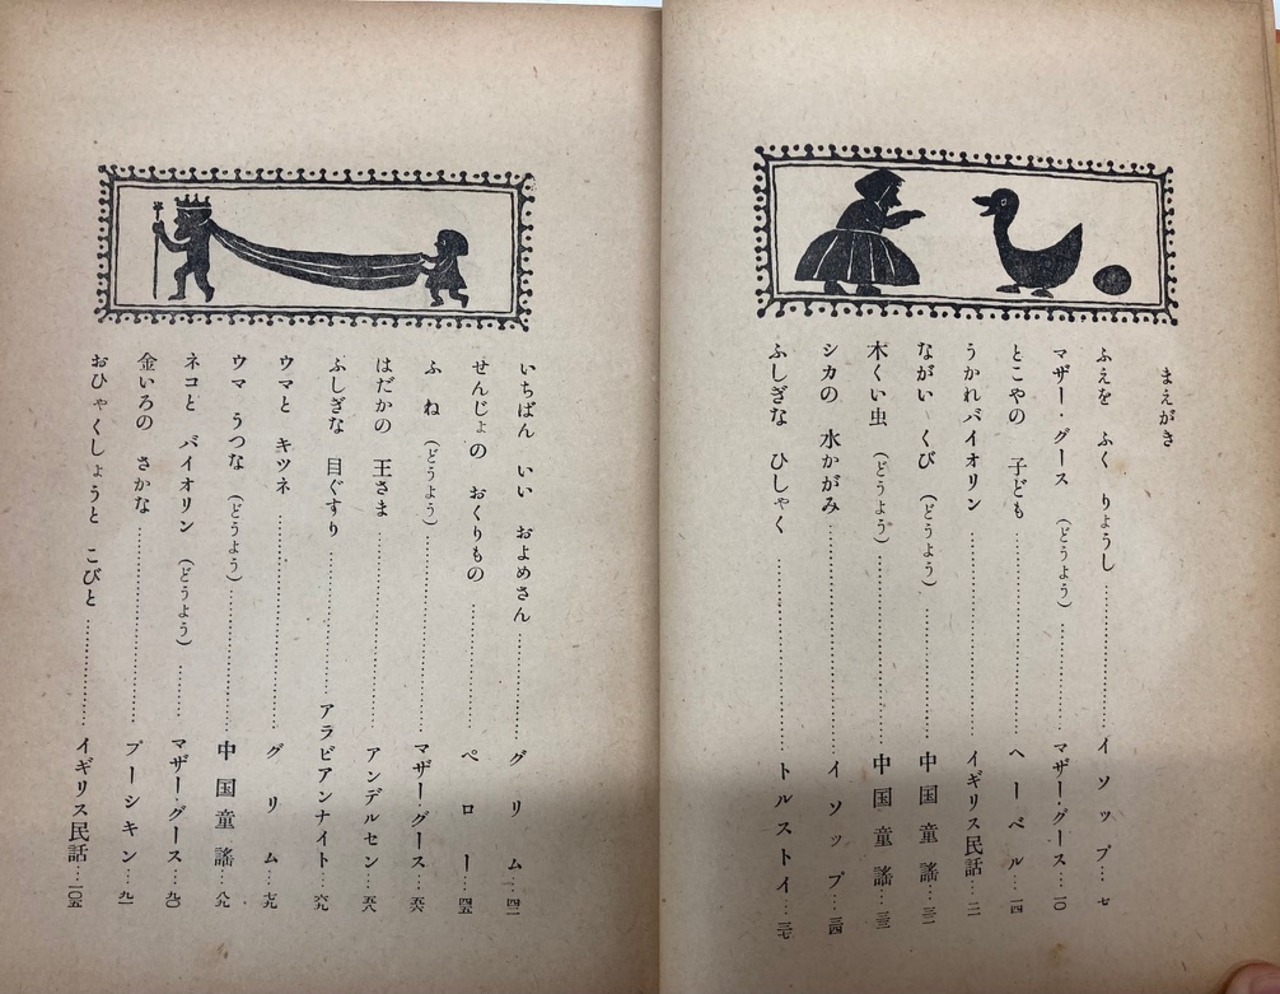 まえがき
ふえを ふく りょうし……イソップ…七
マザー・グース (どうよう)……マザー・グース…一〇
とこやの 子ども……ヘーベル…一四
うかれバイオリン……イギリス民話…二一
ながい くび (どうよう)……中国童謡…三二
木くい虫 (どうよう)……中国童謡…三三
シカの 水かがみ……イソップ…三四
ふしぎな ひしゃく……トルストイ…三七
いちばん いい およめさん……グリム…四二
せんじょの おくりもの……ペロー…四五
ふね (どうよう)……マザー・グース…五六
はだかの 王さま……アンデルセン…五八
ふしぎな 目ぐすり……アラビアンナイト…六九
ウマと キツネ……グリム…七九
ウマ うつな (どうよう)……中国童謡…八九
ネコと バイオリン (どうよう)……マザー・グース…九〇
金いろの さかな……プーシキン…九一
おひゃくしょうと こびと……イギリス民話…一〇五